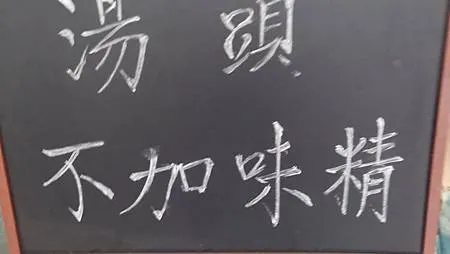 湯頭
不加味精